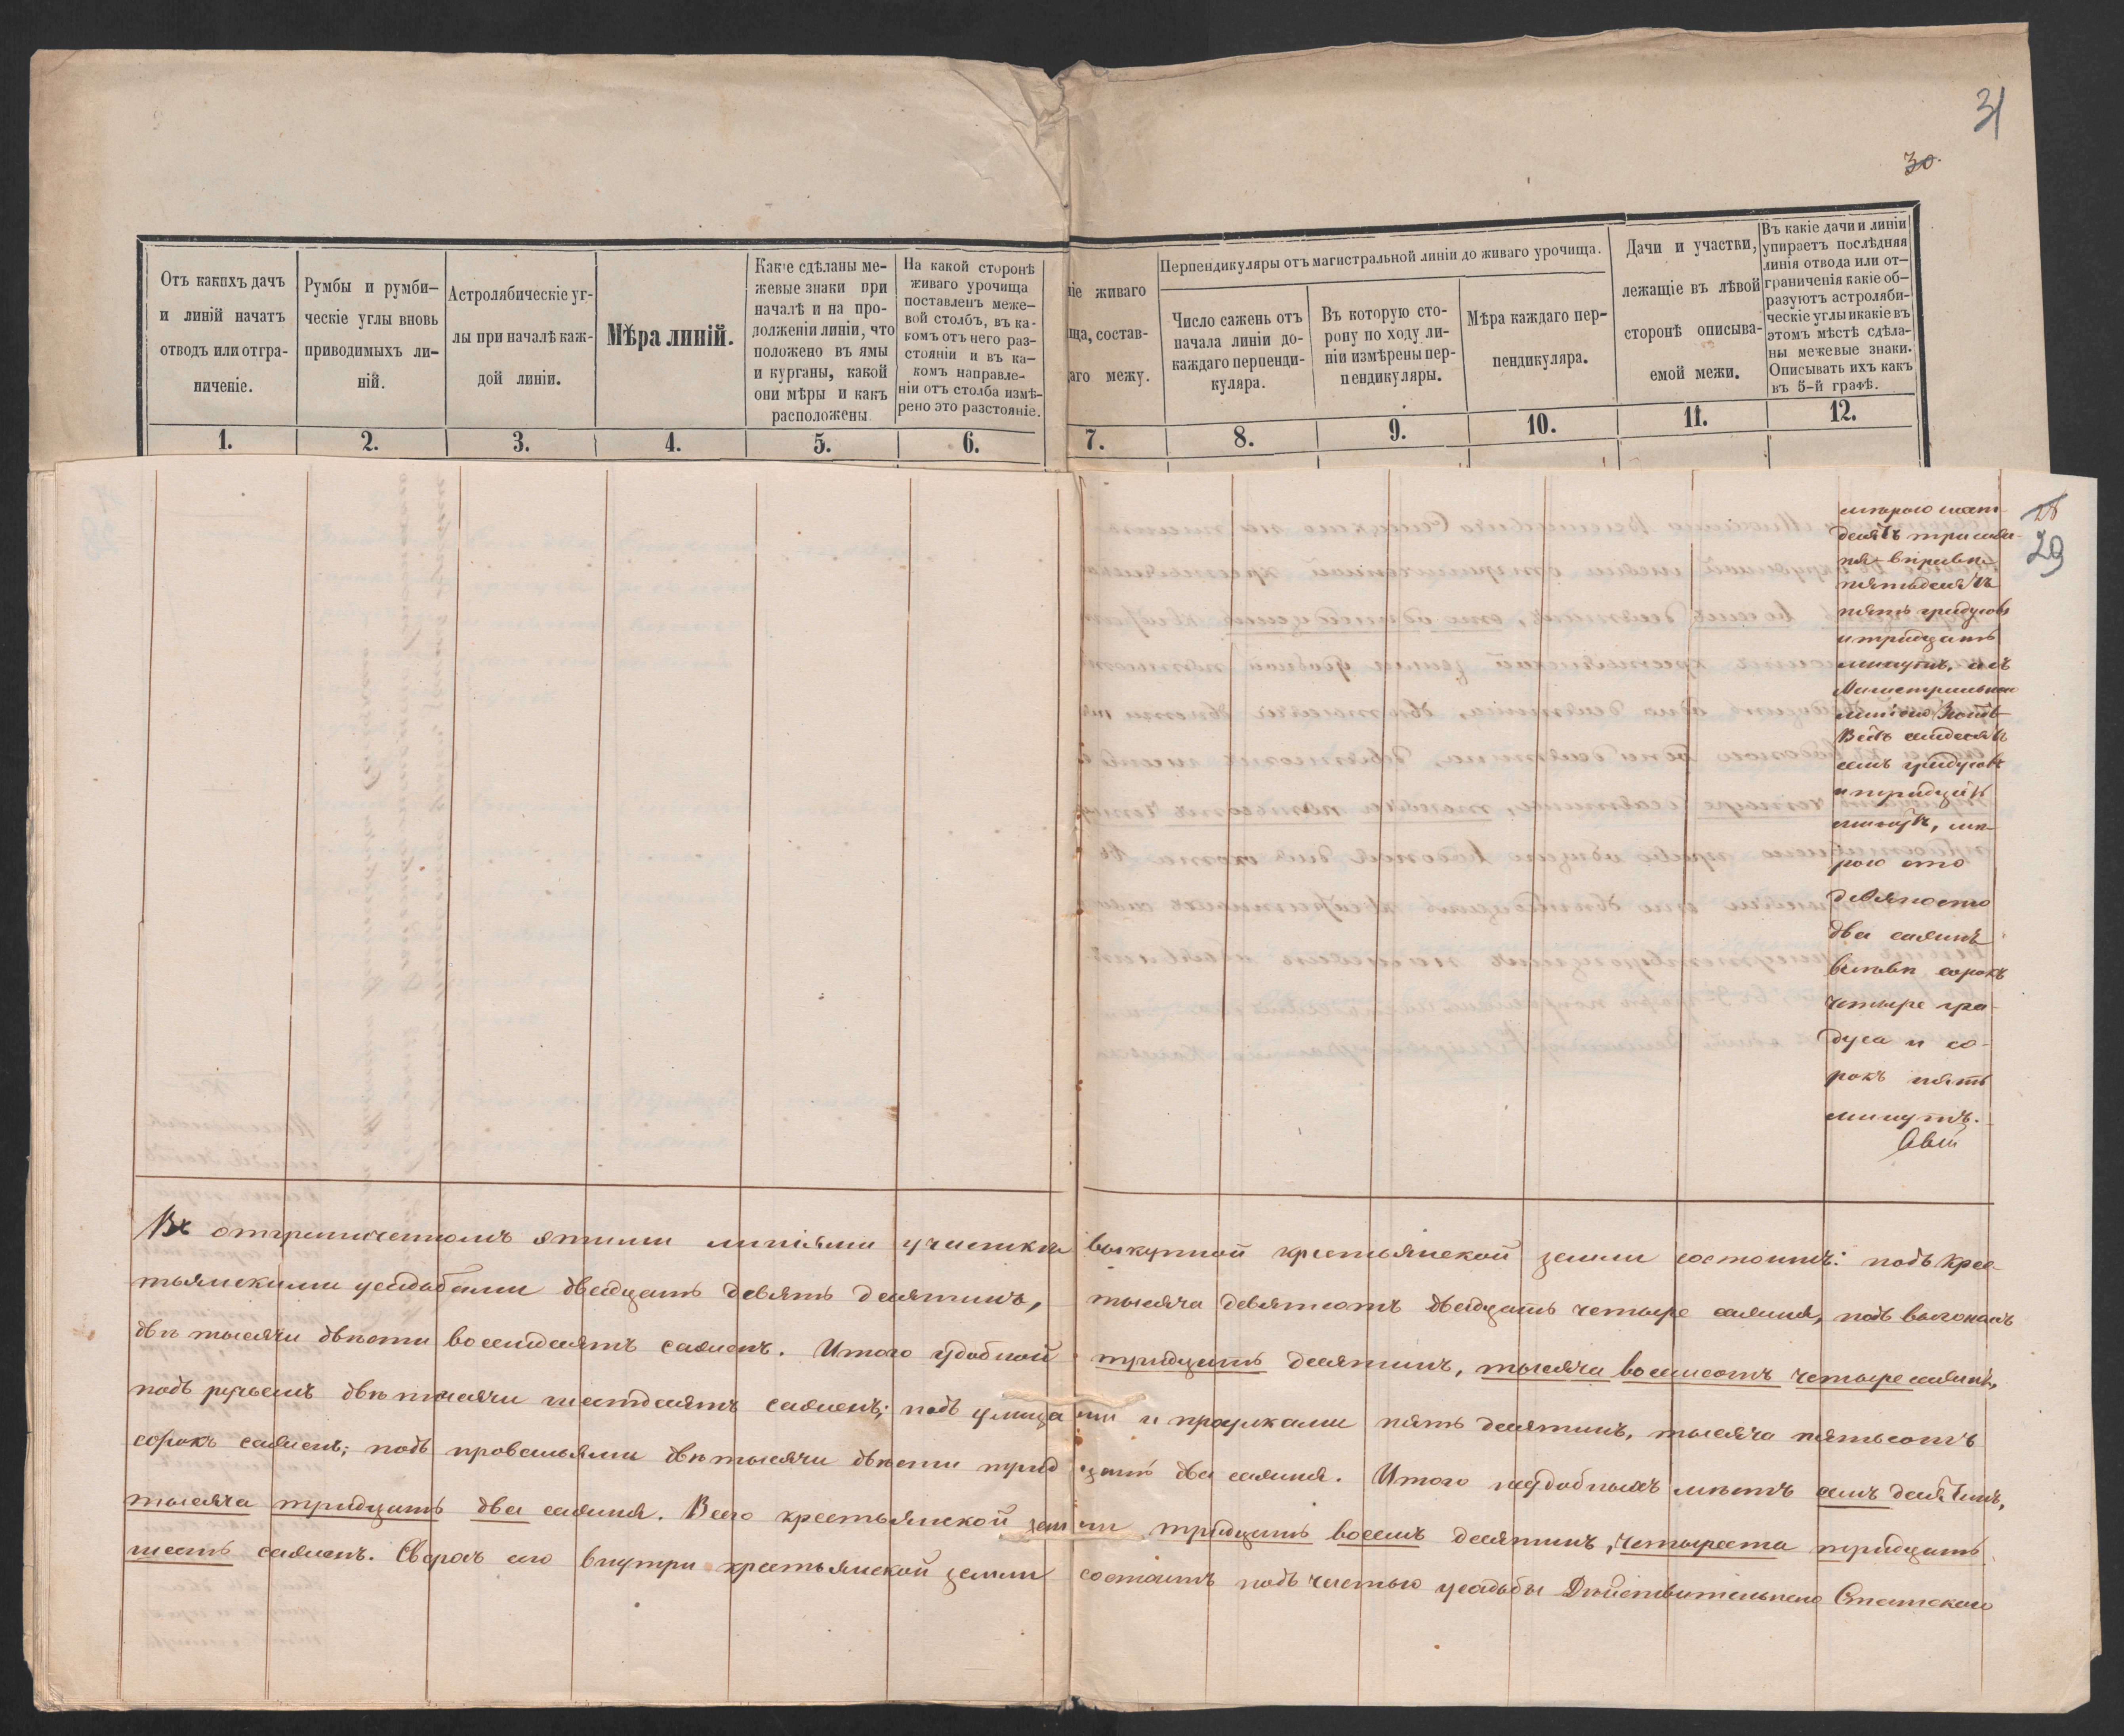 31
30.
Отъ какихъ дачъ
и линій начатъ
отводъ или отгра-
ниченіе.
Румбы и румби-
ческіе углы вновь
приводимыхъ ли-
ній.
Астролябическіе уг-
лы при началѣ каж-
дой линіи.
Мѣра линій.
Какіе сдѣланы ме-
жевые знаки при
началѣ и на про-
долженіи линіи, что
положено въ ямы
и курганы, какой
они мѣры и какъ
расположены.
На какой сторонѣ
живаго урочища
поставленъ меже-
вой столбъ, въ ка-
комъ отъ него раз-
стояніи и въ ка-
комъ направле-
ніи отъ столба измѣ-
рено это разстояніе.
ніе живаго
ща, состав-
аго межу.
Перпендикуляры отъ магистральной линіи до живаго урочища.
Число сажень отъ
начала линіи до
каждаго перпенди-
куляра.
Въ которую сто-
рону по ходу ли-
ніи измѣрены пер-
пендикуляры.
Мѣра каждаго пер-
пендикуляра.
Дачи и участки,
лежащіе въ лѣвой
сторонѣ описыва-
емой межи.
Въ какіе дачи и линіи
упираетъ послѣдняя
линія отвода или от-
граниченія какіе об-
разуютъ астроляби-
ческіе углы и какіе въ
этомъ мѣстѣ сдѣла-
ны межевые знаки.
Описывать ихъ какъ
въ 5-й графѣ.
1. 2. 3. 4. 5. 6. 7. 8. 9. 10. 11. 12.
29
мѣрою шесть-
десятъ три саже-
ня вправѣ
пятьдесятъ
пять градусовъ
и тридцать
минутъ, а съ
Магистральною
линіею Зюйдъ
Вестъ семдесятъ
семь градусовъ
и тридцать
минутъ, мѣ-
рою сто
девяносто
два сажень
влѣвѣ сорокъ
четыре гра-
дуса и со-
рокъ пять
минутъ.
Въ отграниченномъ этими линіями участкѣ выкупной крестьянской земли состоитъ: подъ крес-
тьянскими усадьбами двадцать девять десятинъ, тысяча девятсотъ двадцать четыре саженя, подъ выгономъ
двѣ тысячи двѣсти восемдесятъ саженъ. Итого удобной тридцать десятинъ, тысяча восемсотъ четыре сажень,
подъ ручьемъ двѣ тысячи шестдесятъ саженъ; подъ улицами и проулками пять десятинъ, тысяча пятьсотъ
сорокъ саженъ; подъ провальями двѣ тысячи двѣсти тридцать два саженя. Итого неудобныхъ мѣстъ семь десятинъ,
тысяча тридцать два саженя. Всего крестьянской земли тридцать восемь десятинъ, четыреста тридцать
шесть саженъ. Сверхъ сего внутри крестьянской земли состоитъ подъ частью усадьбы Дѣйствительнаго Статскаго